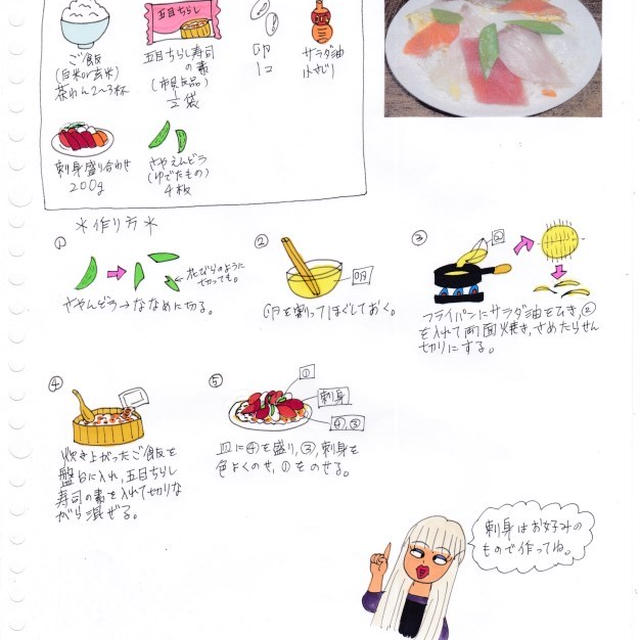 五目ちらし
ご飯
(白米or玄米)
茶わん2〜3杯
五目ちらし寿司
の素
(市販品)
1/2袋
卵
1コ
サラダ油
小さじ1
刺身盛り合わせ
200g
さやえんどう
(ゆでたもの)
4枚
*作り方*
①
花びらのように
切っても。
さやえんどう→ななめに切る。
②
卵
卵を割ってほぐしておく。
③
②
フライパンにサラダ油をひき,②
を入れて両面焼き,さめたらせん
切りにする。
④
炊き上がったご飯を
盤台に入れ,五目ちらし
寿司の素を入れて切りな
がら混ぜる。
⑤
①
刺身
④,③
皿に④を盛り,③,刺身を
色よくのせ,①をのせる。
刺身はお好みの
もので作ってね。